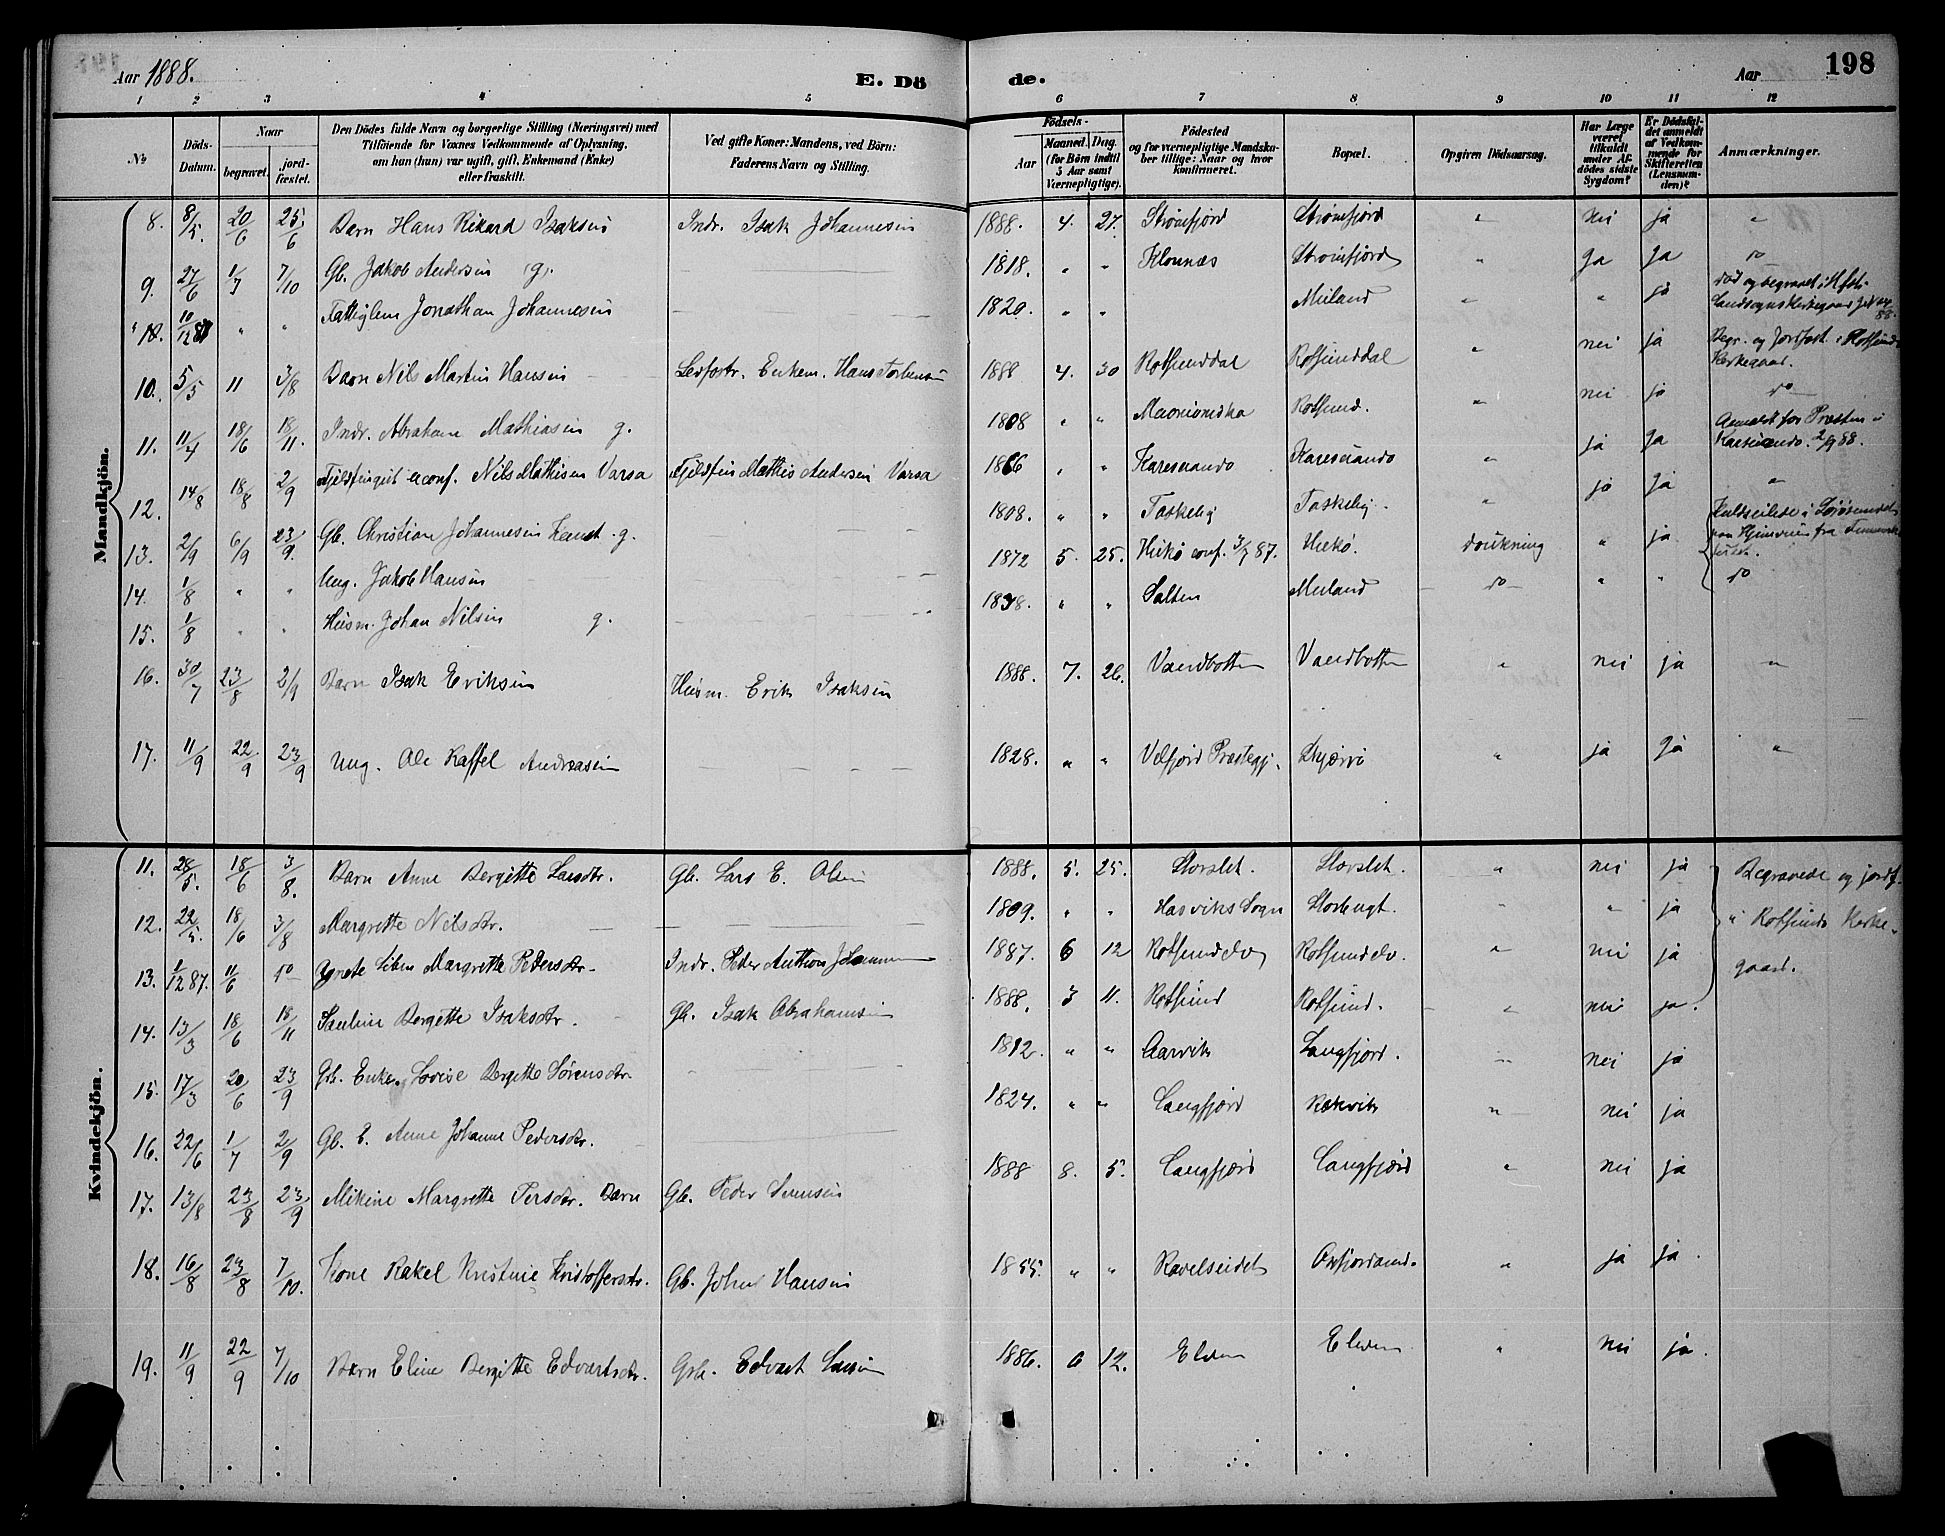 Aar 1888.
E. Dö
de.
Aar
198
1 2 3 4 5 6 7 8 9 10 11 12
No
Döds-Datum.
Naar
begravet.
jord-fæstet.
Den Dödes fulde Navn og borgerlige Stilling (Næringsvei) med Tilföiende for Voxnes Vedkommende af Oplysning, om han (hun) var ugift, gift, Enkemand (Enke) eller fraskilt.
Ved gifte Koner: Mandens, ved Börn: Faderens Navn og Stilling.
Födsels-
Aar
Maaned. Dag.
(for Börn indtil 5 Aar samt Værnepligtige).
Födested og for værnepligtige Mandskaber tillige: Naar og hvor konfirmeret.
Bopæl.
Opgiven Dödsaarsag.
Har Læge været tilkaldt under Afdödes sidste Sygdom?
Er Dödsfaldet anmeldt af Vedkommende for Skifteretten (Lensmanden)?
Anmærkninger.
Mandkjön.
8. 8/5. 20/6 25/6 Barn Hans Rikard Isaksen Indr. Isak Johannesen 1888. 4. 27. Strømfjord Strømfjord " nei ja "
9. 27/6 1/7 7/10 Gb. Jakob Andersen g. 1818. " " Klounæs Strømfjord " ja ja do
" 18. 10/12 87 " " Fattiglem Jonathan Johannesen 1820. " " Meiland " " ja død og begravet i
10. 5/5 11 3/8 Barn Nils Martin Hansen Hans 1888 4. 30 Rotsunddal Rotsunddal " nei ja Begr. og Jordfæst. i Rotsunds Kirkegaard.
11. 11/4 18/6 18/11. Indr. Abraham Mathiasen g. 1808 " " Rotsund. " nei ja do
12. 14/8 18/8 2/9 Nils Mathisen Varsa Mathis Andersen Varsa 1866 " " Karesuando Karesuando " ja ja Anmeldt for Præsten i Karesuando. 2/9 88.
13. 2/9 6/9 23/9. Gb. Christian Johannesen g. 1808. " " Taskeby Taskeby. " ja ja "
14. 1/8 " " Ung. Jakob Hansen 1872 5. 25. Hukø conf. 3/7 87. Hukø. drukning " ja Kuldseilede i paa Hjemveien fra
15. 1/8 " " Husm. Johan Nilsen g. 1838. " " Salten Meiland do " " do
16. 30/7 23/8 2/9 Barn Isak Eriksen Husm. Erik Isaksen 1888. 7. 26. Vandbotten Vandbotten " nei ja "
17. 11/9 22/9 23/9 Ung. Ole Raffel Andreasen 1828. " " Velfjord Præstegj. Skjærvö " ja ja "
Kvindekjön.
11. 28/5. 18/6 3/8. Barn Anne Bergitte Larsdtr. Gb. Lars E. Olsen 1888. 5. 25. Storslet. Storslet. " nei ja Begravede og jordf.
12. 22/5. 18/6 3/8 Margrette Nilsdtr. 1809. " " Hasviks Sogn Storbugt. " " ja i Rotsunds Kirke-
13. 1/12 87. 11/6 do Margrette Pedersdtr. Indr. Peder Anthon 1887. 6 12 Rotsundelv Rotsundelv. " nei ja gaard.
14. 13/3 18/6 18/11 Pauline Bergitte Isaksdtr. Gb. Isak Abrahamsen 1888. 3 11. Rotsund Rotsund. " nei ja.
15. 17/3 20/6 23/9 Gb. Enke. Lovise Bergitte Sörensdtr. 1812. " " Aarvik Langfjord. " nei ja
16. 22/6 1/7 2/9 Gb. E. Anne Johanne Pedersdtr. 1824. " " Langfjord Rakvik " nei ja
17. 13/8 23/8 23/9 Mikine Margrette Persdtr. Barn Gb. Peder 1888 8. 5. Langfjord Langfjord " nei ja
18. 16/8 23/8 7/10. Kone Rakel Kristine Kristoffersdtr. Gb. Johan Hansen 1855. " " Ravelseidet Oxfjordvand. " ja ja.
19. 11/9 22/9 7/10 Barn Eline Bergitte Edvartsdtr. Edvart Larsen 1886. 6 12. Elden Elden " nei ja.